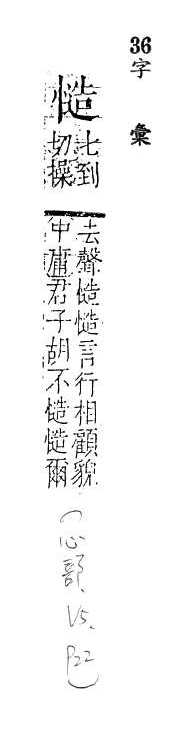 36
字彙
慥
七到
切操
去聲慥慥言行相顧貌
中庸君子胡不慥慥爾
(心部、V5、P22)